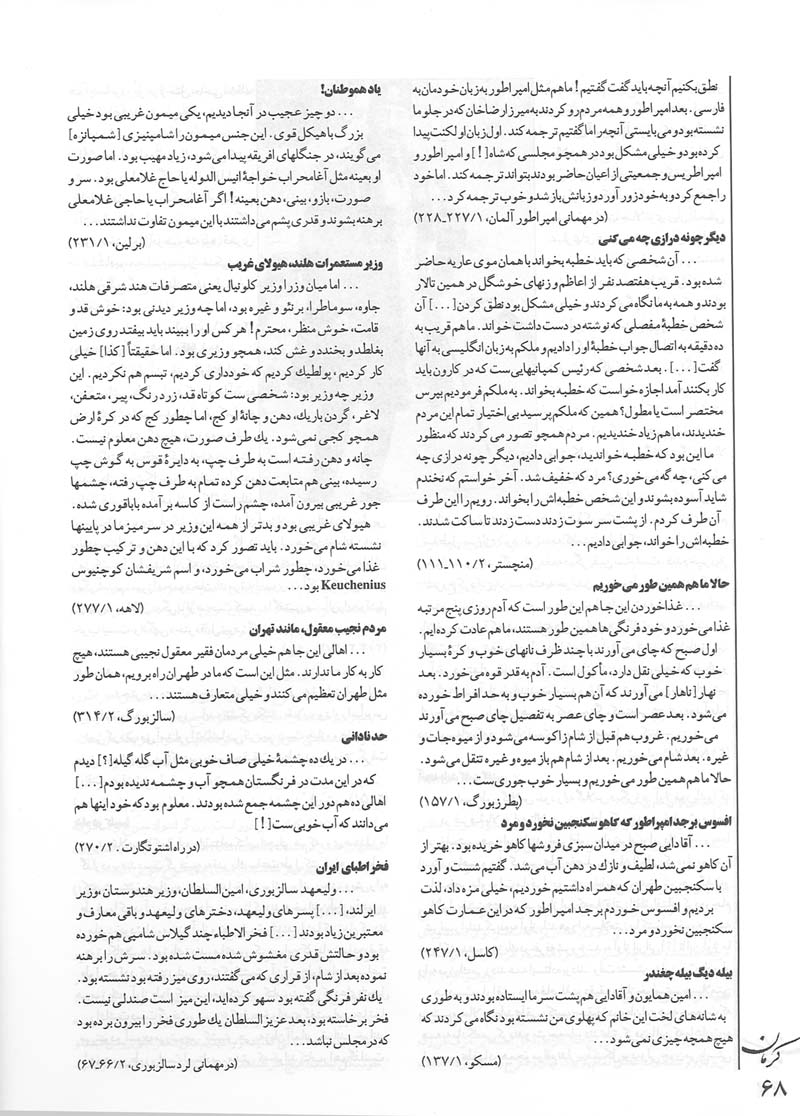 نطق بکنیم آنچه باید گفت گفتیم! ما هم مثل امپراطور به زبان خودمان به
فارسی. بعد امپراطور و همه مردم رو کردند به میرزا رضاخان که در جلو ما
نشسته بود و می‌بایستی آنچه را ما گفتیم ترجمه کند. اول زبان او لکنت پیدا
کرده بود و خیلی مشکل بود در همچو مجلسی که شاه [!] و امپراطور و
امپراطریس و جمعیتی از اعیان حاضر بودند بتواند ترجمه کند. اما خود
را جمع کرد و به خود زور آورد و زبانش باز شد و خوب ترجمه کرد...
(در مهمانی امپراطور آلمان، ۱/۲۲۷ـ۲۲۸)
دیگر چونه درازی چه می‌کنی
... آن شخصی که باید خطبه بخواند با همان موی عاریه حاضر
شده بود. قریب هفتصد نفر از اعاظم و زنهای خوشگل در همین تالار
بودند و همه به ما نگاه می‌کردند و خیلی مشکل بود نطق کردن [...] آن
شخص خطبهٔ مفصلی که نوشته در دست داشت خواند. ما هم قریب به
ده دقیقه به اتصال جواب خطبهٔ او را دادیم و ملکم به زبان انگلیسی به آنها
گفت [...]. بعد شخصی که رئیس کمپانیهایی ست که در کارون باید
کار بکنند آمد اجازه خواست که خطبه بخواند. به ملکم فرمودیم بپرس
مختصر است یا مطول؟ همین که ملکم پرسید بی‌اختیار تمام این مردم
خندیدند، ما هم زیاد خندیدیم. مردم همچو تصور می‌کردند که منظور
ما این بود که خطبه خواندید، جوابی دادیم، دیگر چونه درازی چه
می‌کنی، چه گه می‌خوری؟ مرد که خفیف شد. آخر خواستم که نخندم
شاید آسوده بشوند و این شخص خطبه‌اش را بخواند. رویم را این طرف
آن طرف کردم. از پشت سر سوت زدند دست زدند تا ساکت شدند.
خطبه‌اش را خواند، جوابی دادیم...
(منچستر، ۲/۱۱۰ـ۱۱۱)
حالا ما هم همین طور می‌خوریم
... غذا خوردن این جا هم این طور است که آدم روزی پنج مرتبه
غذا می‌خورد و خود فرنگی‌ها همین طور هستند، ما هم عادت کرده‌ایم.
اول صبح که چای می‌آورند با چند ظرف نانهای خوب و کرهٔ بسیار
خوب که خیلی نقل دارد، مأکول است. آدم به قدر قوه می‌خورد. بعد
نهار [ناهار] می‌آورند که آن هم بسیار خوب و به حد افراط خورده
می‌شود. بعد عصر است و چای عصر به تفصیل چای صبح می‌آورند
می‌خوریم. غروب هم قبل از شام زاکوسه می‌شود و از میوه‌جات و
غیره. بعد شام می‌خوریم. بعد از شام هم باز میوه و غیره تنقل می‌شود.
حالا ما هم همین طور می‌خوریم و بسیار خوب جوری ست...
(پطرزبورگ، ۱/۱۵۷)
افسوس بر جد امپراطور که کاهو سکنجبین نخورد و مرد
... آقادایی صبح در میدان سبزی فروشها کاهو خریده بود. بهتر از
آن کاهو نمی‌شد، لطیف و نازك در دهن آب می‌شد. گفتیم شست و آورد
با سکنجبین طهران که همراه داشتیم خوردیم، خیلی مزه داد، لذت
بردیم و افسوس خوردم بر جد امپراطور که در این عمارت کاهو
سکنجبین نخورد و مرد...
(کاسل، ۱/۲۴۷)
بیله دیگ بیله چغندر
... امین همایون و آقادایی هم پشت سر ما ایستاده بودند و به طوری
به شانه‌های لخت این خانم که پهلوی من نشسته بود نگاه می‌کردند که
هیچ همچه چیزی نمی‌شود...
(مسکو، ۱/۱۳۷)
یاد هموطنان!
... دو چیز عجیب در آنجا دیدیم، یکی میمون غریبی بود خیلی
بزرگ با هیکل قوی. این جنس میمون را شامپنیزی [شمپانزه]
می‌گویند، در جنگلهای افریقه پیدا می‌شود، زیاد مهیب بود. اما صورت
او بعینه مثل آغامحراب خواجهٔ انیس الدوله یا حاج غلامعلی بود. سر و
صورت، بازو، بینی، دهن بعینه! اگر آغامحراب یا حاجی غلامعلی
برهنه بشوند و قدری پشم می‌داشتند با این میمون تفاوت نداشتند...
(برلین، ۱/۲۳۱)
وزیر مستعمرات هلند، هیولای غریب
... اما میان وزرا وزیر کلونیال یعنی متصرفات هند شرقی هلند،
جاوه، سوماطرا، برنئو و غیره بود، اما چه وزیر دیدنی بود: خوش قد و
قامت، خوش منظر، محترم! هر کس او را ببیند باید بیفتد روی زمین
بغلطد و بخندد و غش کند، همچو وزیری بود. اما حقیقتاً [کذا] خیلی
کار کردیم، پولطیك کردیم که خودداری کردیم، تبسم هم نکردیم. این
وزیر چه وزیر بود: شخصی ست کوتاه قد، زرد رنگ، پیر، متعفن،
لاغر، گردن باریك، دهن و چانهٔ او کج، اما چطور کج که در کرهٔ ارض
همچو کجی نمی‌شود. یك طرف صورت، هیچ دهن معلوم نیست.
چانه و دهن رفته است به طرف چپ، به دایرهٔ قوس به گوش چپ
رسیده، بینی هم متابعت دهن کرده تمام به طرف چپ رفته، چشمها
جور غریبی بیرون آمده، چشم راست از کاسه برآمده باباقوری شده.
هیولای غریبی بود و بدتر از همه این وزیر در سر میز ما در پایینها
نشسته شام می‌خورد. باید تصور کرد که با این دهن و ترکیب چطور
غذا می‌خورد، چطور شراب می‌خورد، و اسم شریفشان کوچنیوس
Keuchenius بود...
(لاهه، ۱/۲۷۷)
مردم نجیب معقول، مانند تهران
... اهالی این جا هم خیلی مردمان فقیر معقول نجیبی هستند، هیچ
کار به کار ما ندارند. مثل این است که ما در طهران راه برویم، همان طور
مثل طهران تعظیم می‌کنند و خیلی متعارف هستند...
(سالزبورگ، ۲/۳۱۴)
حد نادانی
... در یك ده چشمهٔ خیلی صاف خوبی مثل آب گله گیله [؟] دیدم
که در این مدت در فرنگستان همچو آب و چشمه ندیده بودم [...]
اهالی ده هم دور این چشمه جمع شده بودند. معلوم بود که خود اینها هم
می‌دانند که آب خوبی ست [!]
(در راه اشتوتگارت، ۲/۲۷۰)
فخر اطبای ایران
... ولیعهد سالزبوری، امین السلطان، وزیر هندوستان، وزیر
ایرلند، [...] پسرهای ولیعهد، دخترهای ولیعهد و باقی معارف و
معتبرین زیاد بودند [...] فخرالاطباء چند گیلاس شامپی هم خورده
بود و حالتش قدری مغشوش شده مست شده بود. سرش را برهنه
نموده بعد از شام، از قراری که می‌گفتند، روی میز رفته بود نشسته بود.
یك نفر فرنگی گفته بود سهو کرده‌اید، این میز است صندلی نیست.
فخر برخاسته بود، بعد عزیز السلطان یك طوری فخر را بیرون برده بود
که در مجلس نباشد...
(در مهمانی لرد سالزبوری، ۲/۶۶ـ۶۷)
کرمان
۶۸